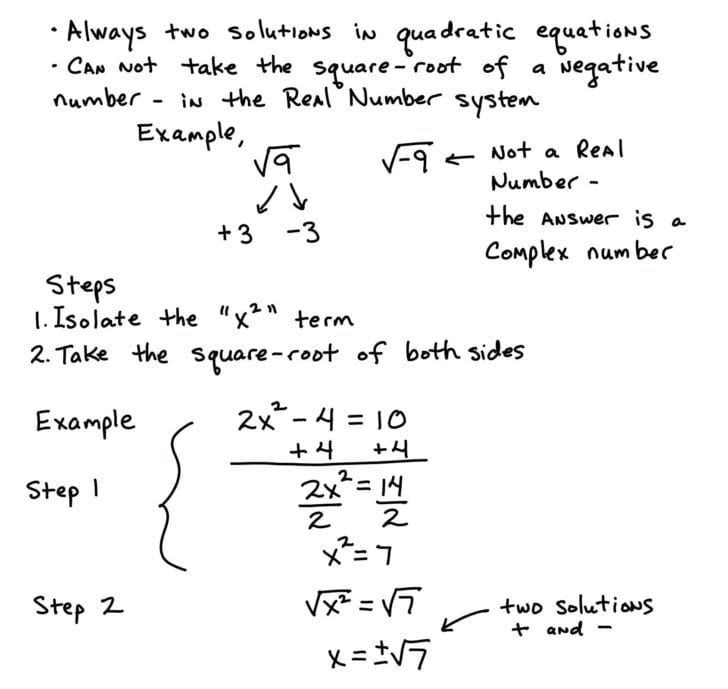 • Always two solutions in quadratic equations
• Can not take the square-root of a negative
number - in the Real Number system
Example,
√9
+3 -3
√-9 ← Not a Real
Number -
the Answer is a
Complex number
Steps
1. Isolate the "x²" term
2. Take the square-root of both sides
Example
2x² - 4 = 10
+4 +4
Step 1
2x² = 14
2 2
x² = 7
Step 2
√x² = √7
x = ±√7
two solutions
+ and -